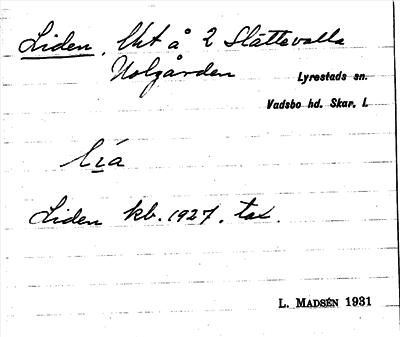 Liden, Uht å 2 Slättevalla
Holgården
Lyrestads sn.
Vadsbo hd. Skar. l.
lı̲a
Liden kb. 1927. tax.
L. MADSÉN 1931